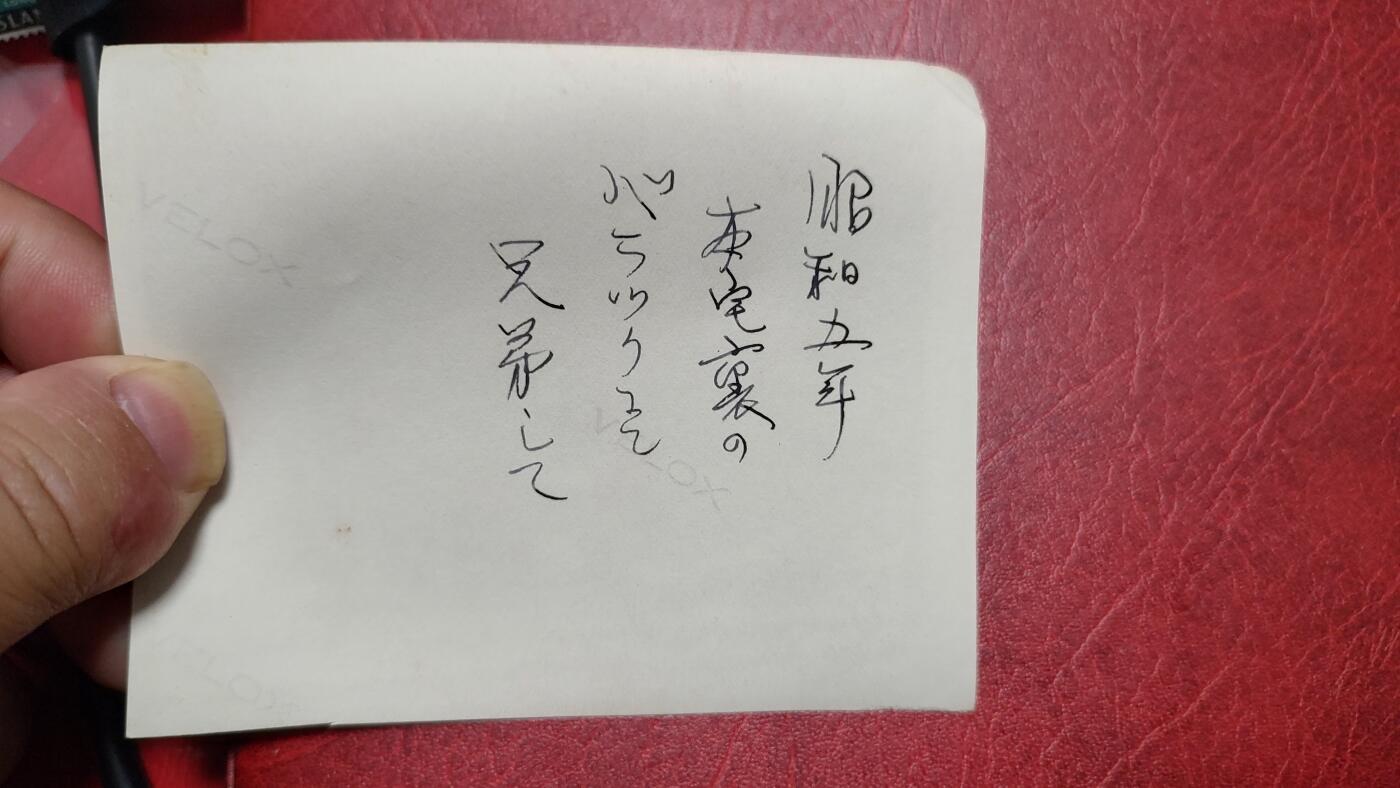 昭和五年
本宅裏の
バラツクにて
兄弟して
VELOX
VELOX